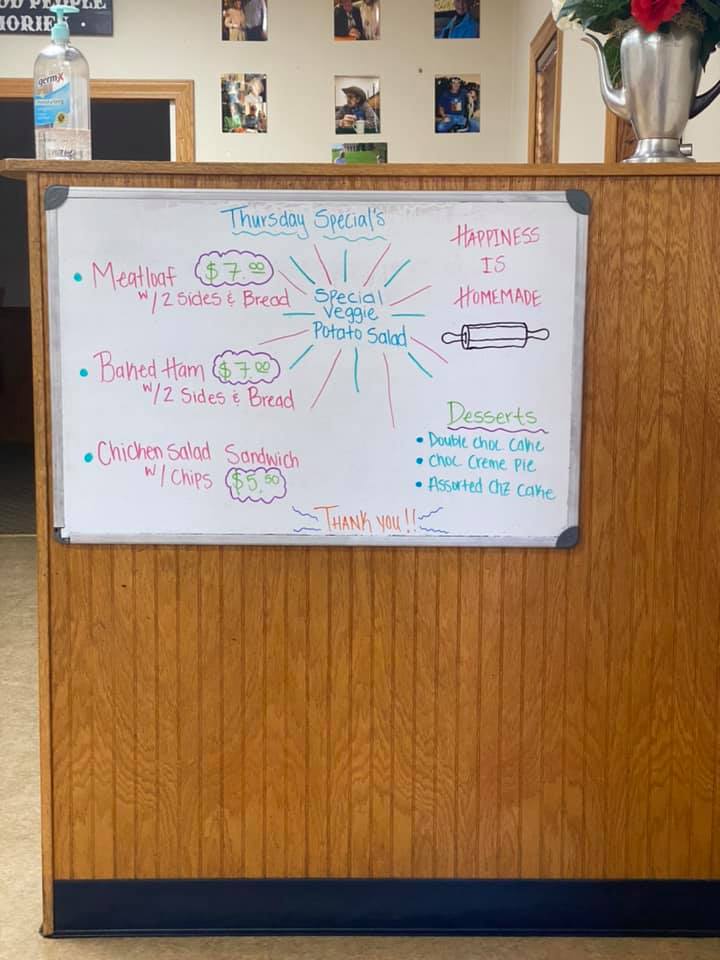 OD PEOPLE
MORIES
germ-X
Thursday Special's
• Meatloaf $7.00
w/2 Sides & Bread
• Baked Ham $7.00
w/2 Sides & Bread
• Chicken Salad Sandwich
w/ Chips $5.50
Special
Veggie
Potato Salad
HAPPINESS
IS
HOMEMADE
Desserts
• Double Choc Cake
• Choc Creme Pie
• Assorted Chz Cake
THANK YOU!!